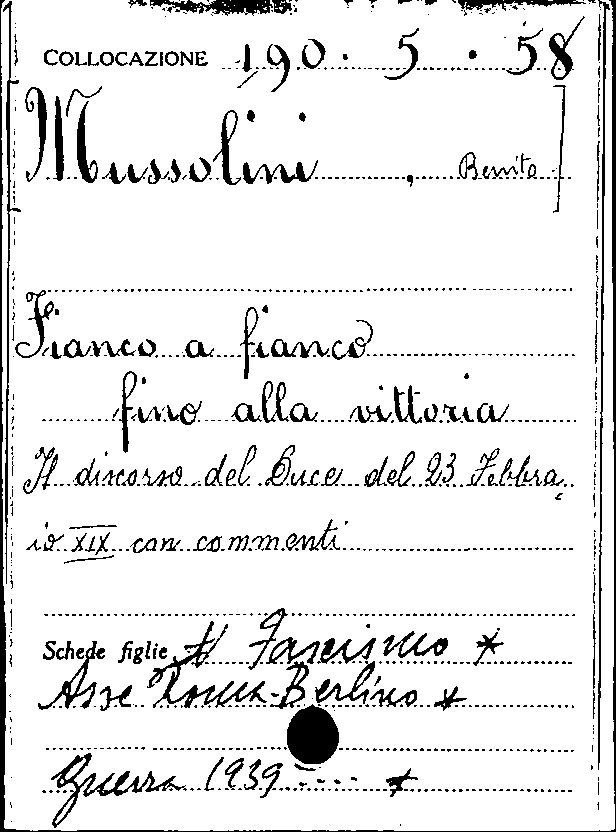 COLLOCAZIONE 190 · 5 · 58
[Mussolini , Benito]
Fianco a fianco
fino alla vittoria
Il discorso del Duce del 23 Febbra,
io XIX con commenti
Schede figlie Fascismo *
Asse Roma-Berlino *
Guerra 1939-.... *